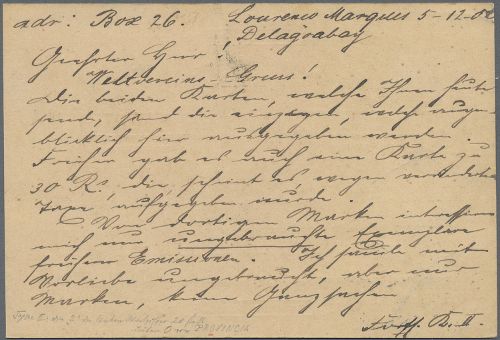 adr: Box 26. Lourenco Marques 5-12-02
Delagoabay
Geehrter Herr!
Weltvereins-Gruss!
Die beiden Karten, welche Ihnen heute
send, sind die einzigen, welche augen-
blicklich hier ausgegeben werden.
Früher gab es auch eine Karte zu
30 Rs, die, scheint es, wegen veränderter
Taxe aufgegeben wurde.
Von dortigen Marken interessieren
mich nur ungebrauchte Exemplare
früherer Emissionen. Ich samle mit
Vorliebe ungebraucht, aber nur
Marken, keine Ganzsachen
Forts. B. II.
PROVINCIA